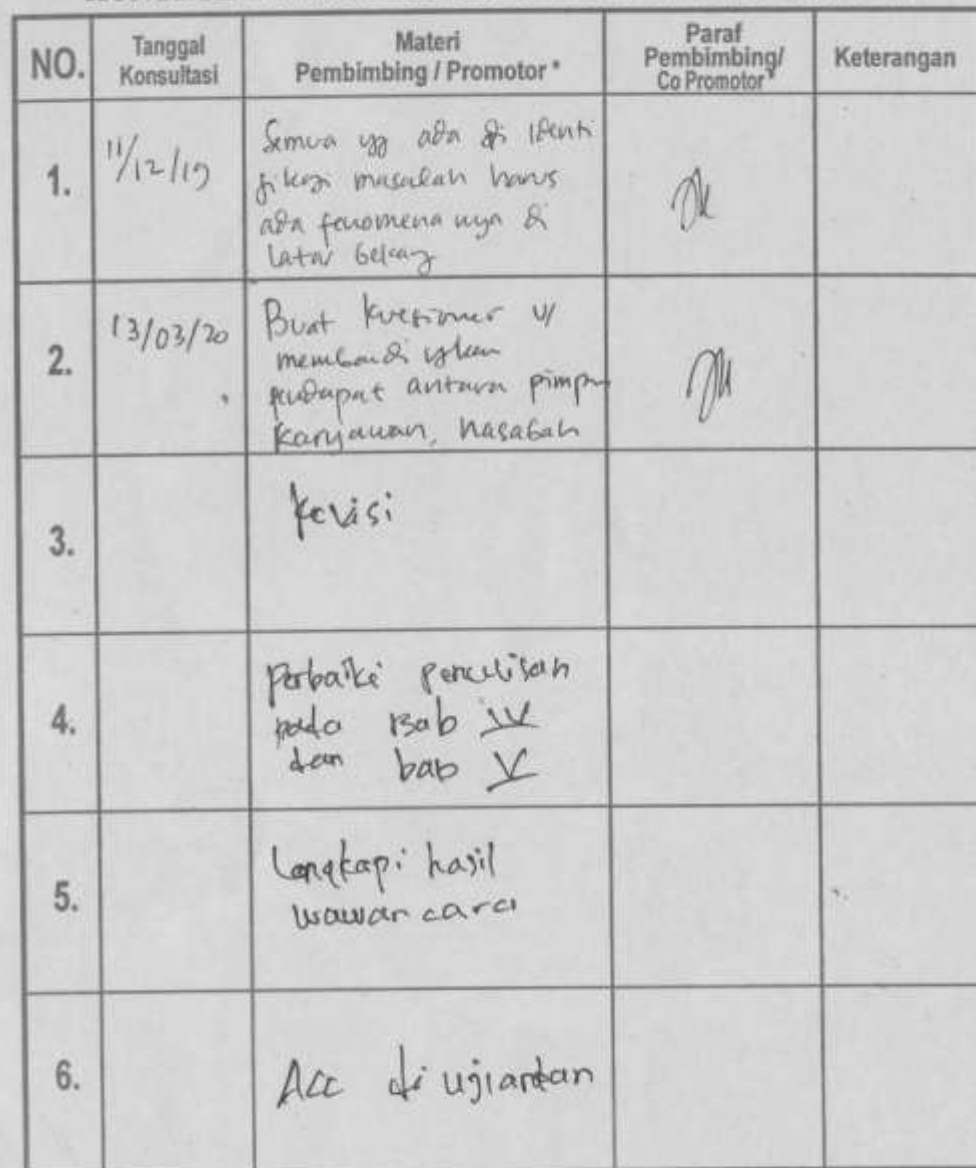 NO.
Tanggal
Konsultasi
Materi
Pembimbing / Promotor *
Paraf
Pembimbing/
Co Promotor *
Keterangan
1.
11/12/19
Semua yg ada di identi
fikasi masalah harus
ada fenomena nya di
latar belakang
2.
13/03/20
Buat kuesioner u/
membandingkan
pendapat antara pimpn
karyawan, nasabah
3.
Revisi
4.
Perbaiki penulisan
pada Bab IV
dan bab V
5.
Lengkapi hasil
wawancara
6.
Acc di ujiankan